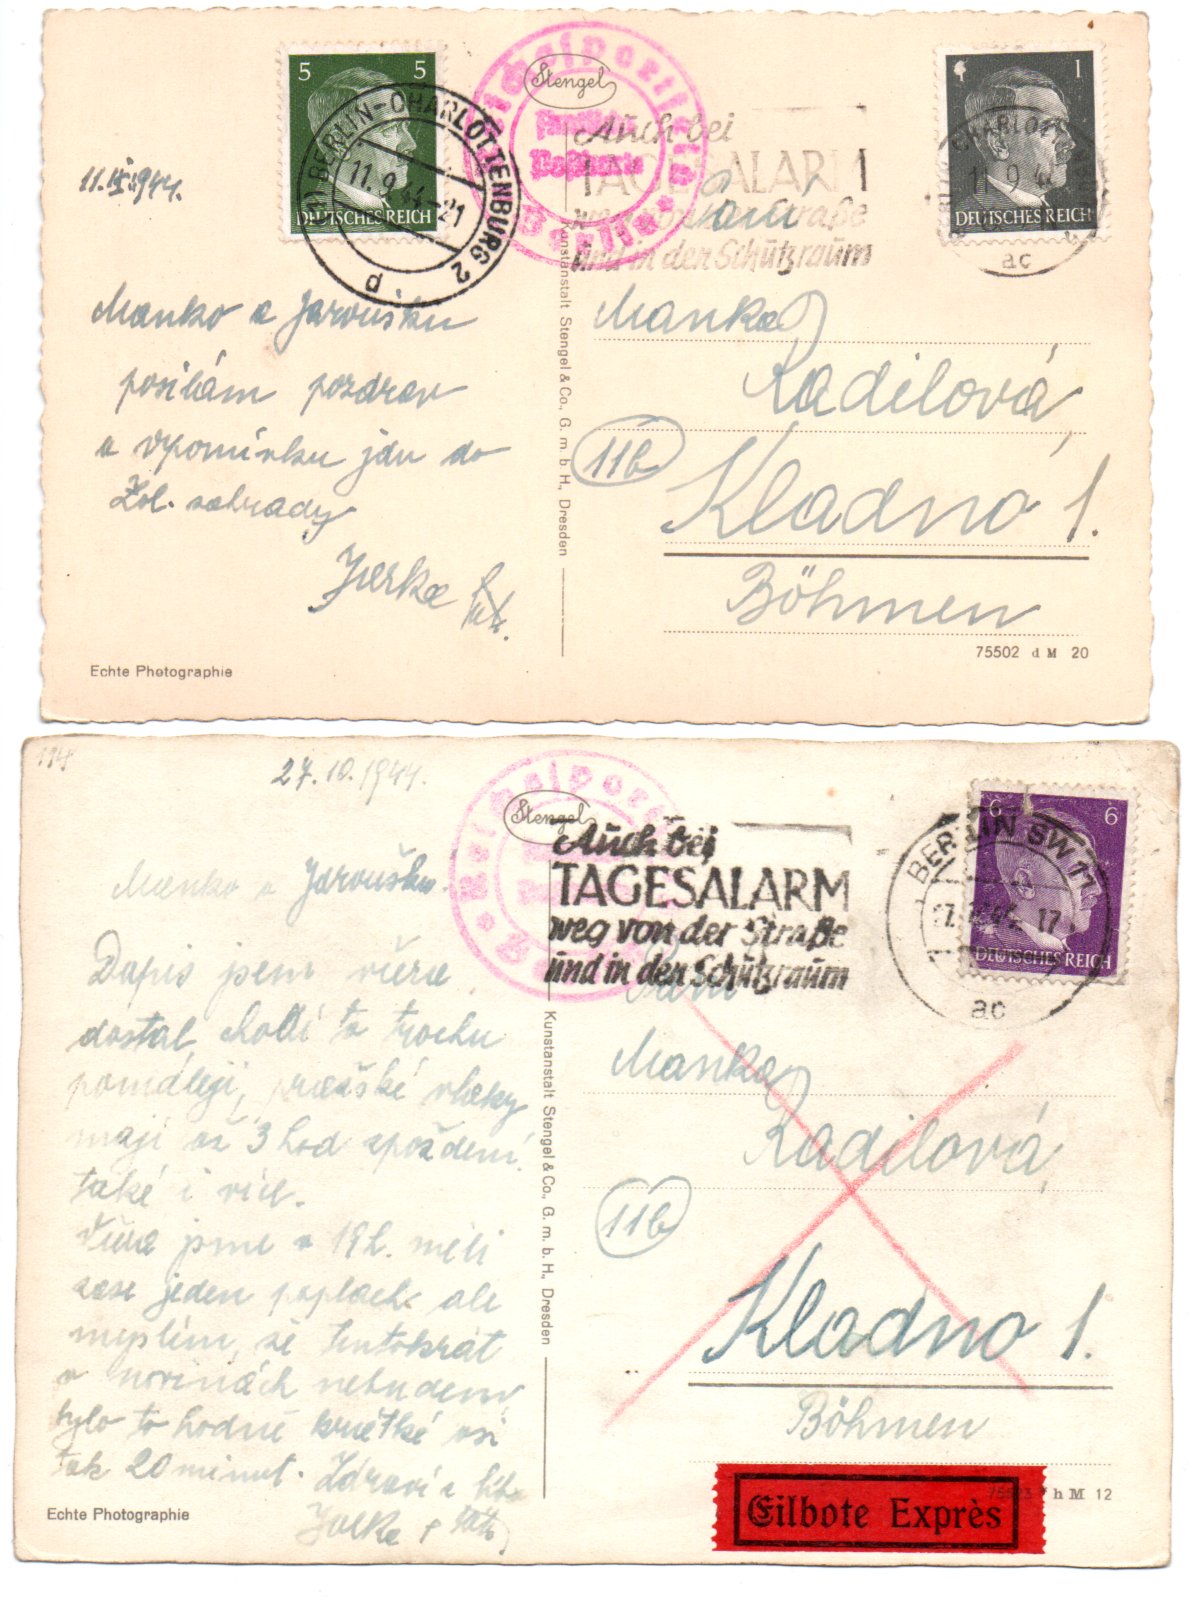 11.IX.1944.
5 5
DEUTSCHES REICH
BERLIN-CHARLOTTENBURG 2
11.9.44-21
d
Stengel
Auch bei
TAGESALARM
weg von der Straße
und in den Schutzraum
1
DEUTSCHES REICH
CHARLOTTENBURG
11 9 44
ac
Manko a Jaroušku
posílám pozdrav
a vzpomínku jdu do
Zol. zahrady
Jarka
Echte Photographie
Kunstanstalt Stengel & Co., G. m. b. H., Dresden
Paní
Manka
Radilová,
11b
Kladno 1.
Böhmen
75502 d M 20
1945
27.10.1944.
Stengel
Auch bei
TAGESALARM
weg von der Straße
und in den Schutzraum
6 6
DEUTSCHES REICH
BERLIN SW 11
17
ac
Manko a Jaroušku.
Dopis jsem včera
dostal, chodí to trochu
pomáleji, pražské vlaky
mají až 3 hod zpoždění
také i více.
Včera jsme v 19h. měli
zase jeden poplach. ale
myslím, že tentokrát
v novinách nebudem,
bylo to hodně krátké asi
tak 20 minut. Zdraví a líbá
Jarka
Echte Photographie
Kunstanstalt Stengel & Co., G. m. b. H., Dresden
Paní
Manka
Radilová,
11b
Kladno 1.
Böhmen
h M 12
Eilbote Exprès